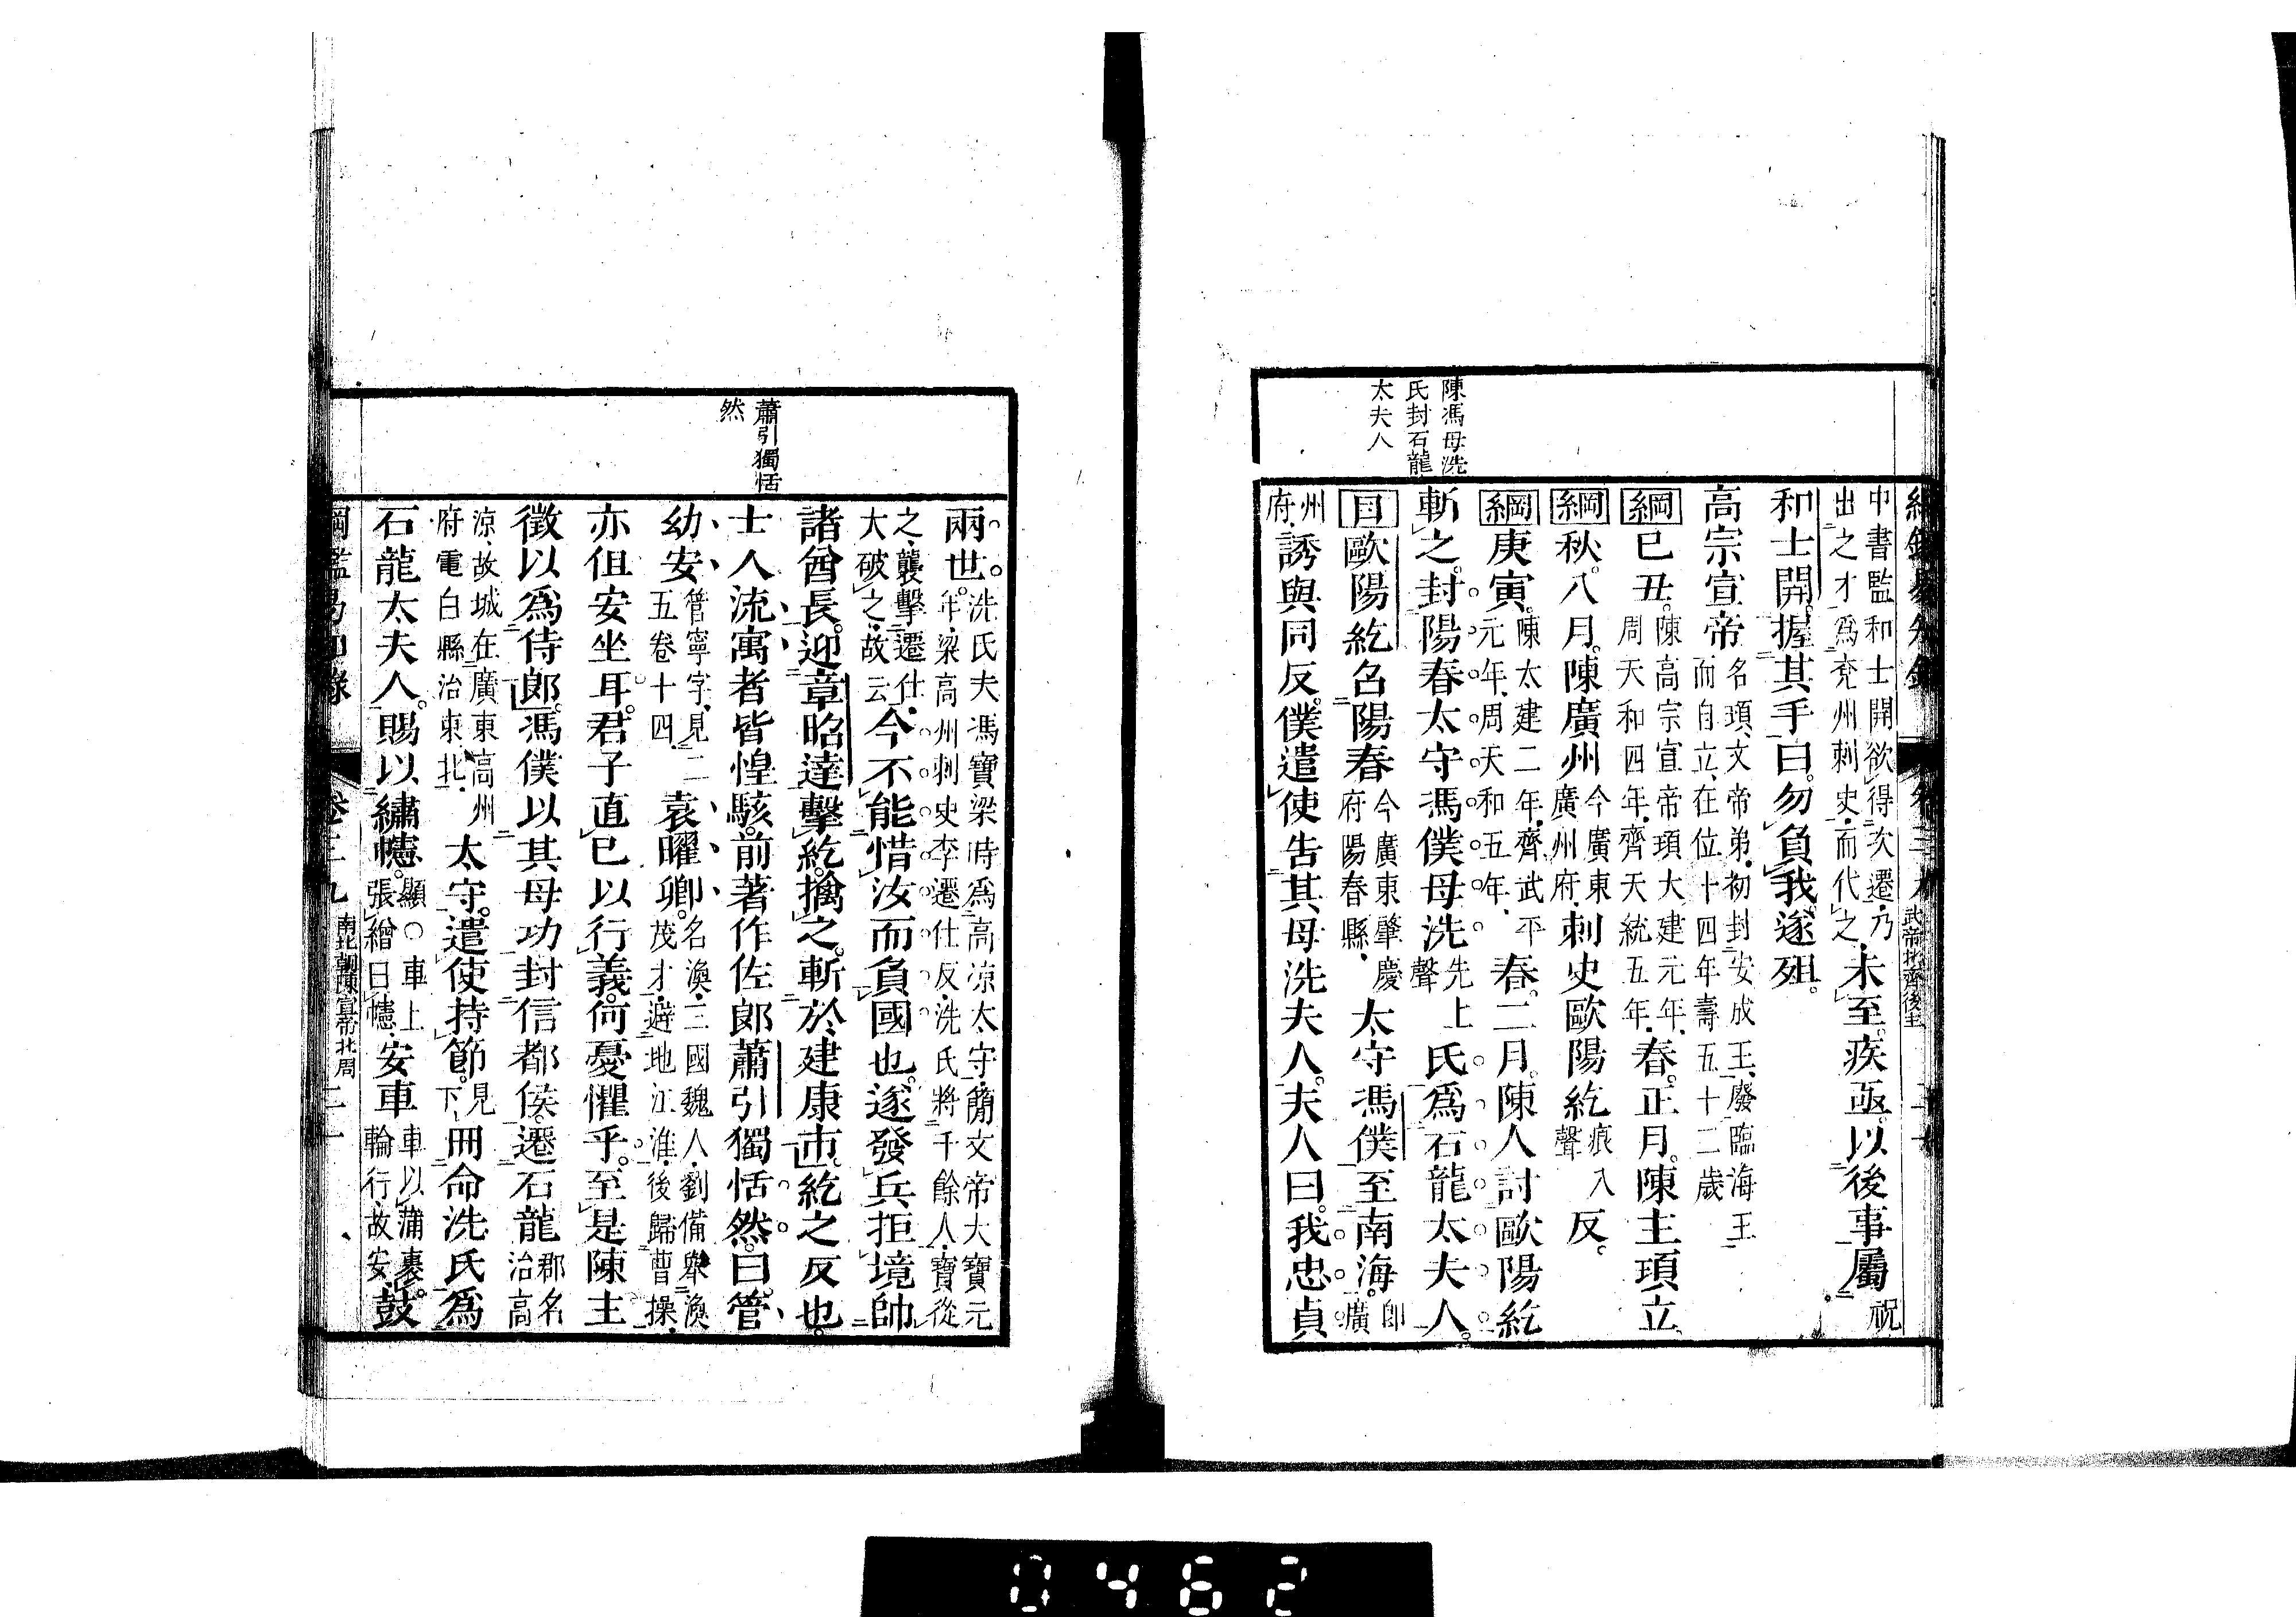 陳馮母洗
氏封石龍
太夫人
中書監和士開欲得次遷乃
出之才爲兗州刺史而代之
未至疾亟以後事屬祝
和士開握其手曰勿負我遂殂
高宗宣帝名頊文帝弟初封安成王廢臨海王
而自立在位十四年壽五十二歲
綱己丑陳高宗宣帝頊大建元年
周天和四年齊天統五年春正月陳主頊立
綱秋八月陳廣州今廣東
廣州府刺史歐陽紇痕入
聲反
綱庚寅陳太建二年齊武平
元年周天和五年春二月陳人討歐陽紇
斬之封陽春太守馮僕母洗先上
聲氏爲石龍太夫人
目歐陽紇召陽春今廣東肇慶
府陽春縣太守馮僕至南海卽廣
州
府誘與同反僕遣使告其母洗夫人夫人曰我忠貞
蕭引獨恬
然
兩世洗氏夫馮寶梁時爲高凉太守簡文帝大寶元
年梁高州刺史李遷仕反洗氏將千餘人寶從
之襲擊遷仕
大破之故云今不能惜汝而負國也遂發兵拒境帥
諸酋長迎章昭達擊紇擒之斬於建康市紇之反也
士人流寓者皆惶駭前著作佐郞蕭引獨恬然曰管
幼安管寧字見二
五卷十四袁曜卿名渙三國魏人劉備舉渙
茂才避地江淮後歸曹操
亦但安坐耳君子直己以行義何憂懼乎至是陳主
徵以爲侍郞馮僕以其母功封信都侯遷石龍郡名
治高
凉故城在廣東高州
府電白縣治東北太守遣使持節見
下冊命洗氏爲
石龍太夫人賜以繡幰顯○車上
張繒曰幰安車車以蒲裹
輪行故安鼓
綱鑑易知錄 卷三九 南北朝陳宣帝北周